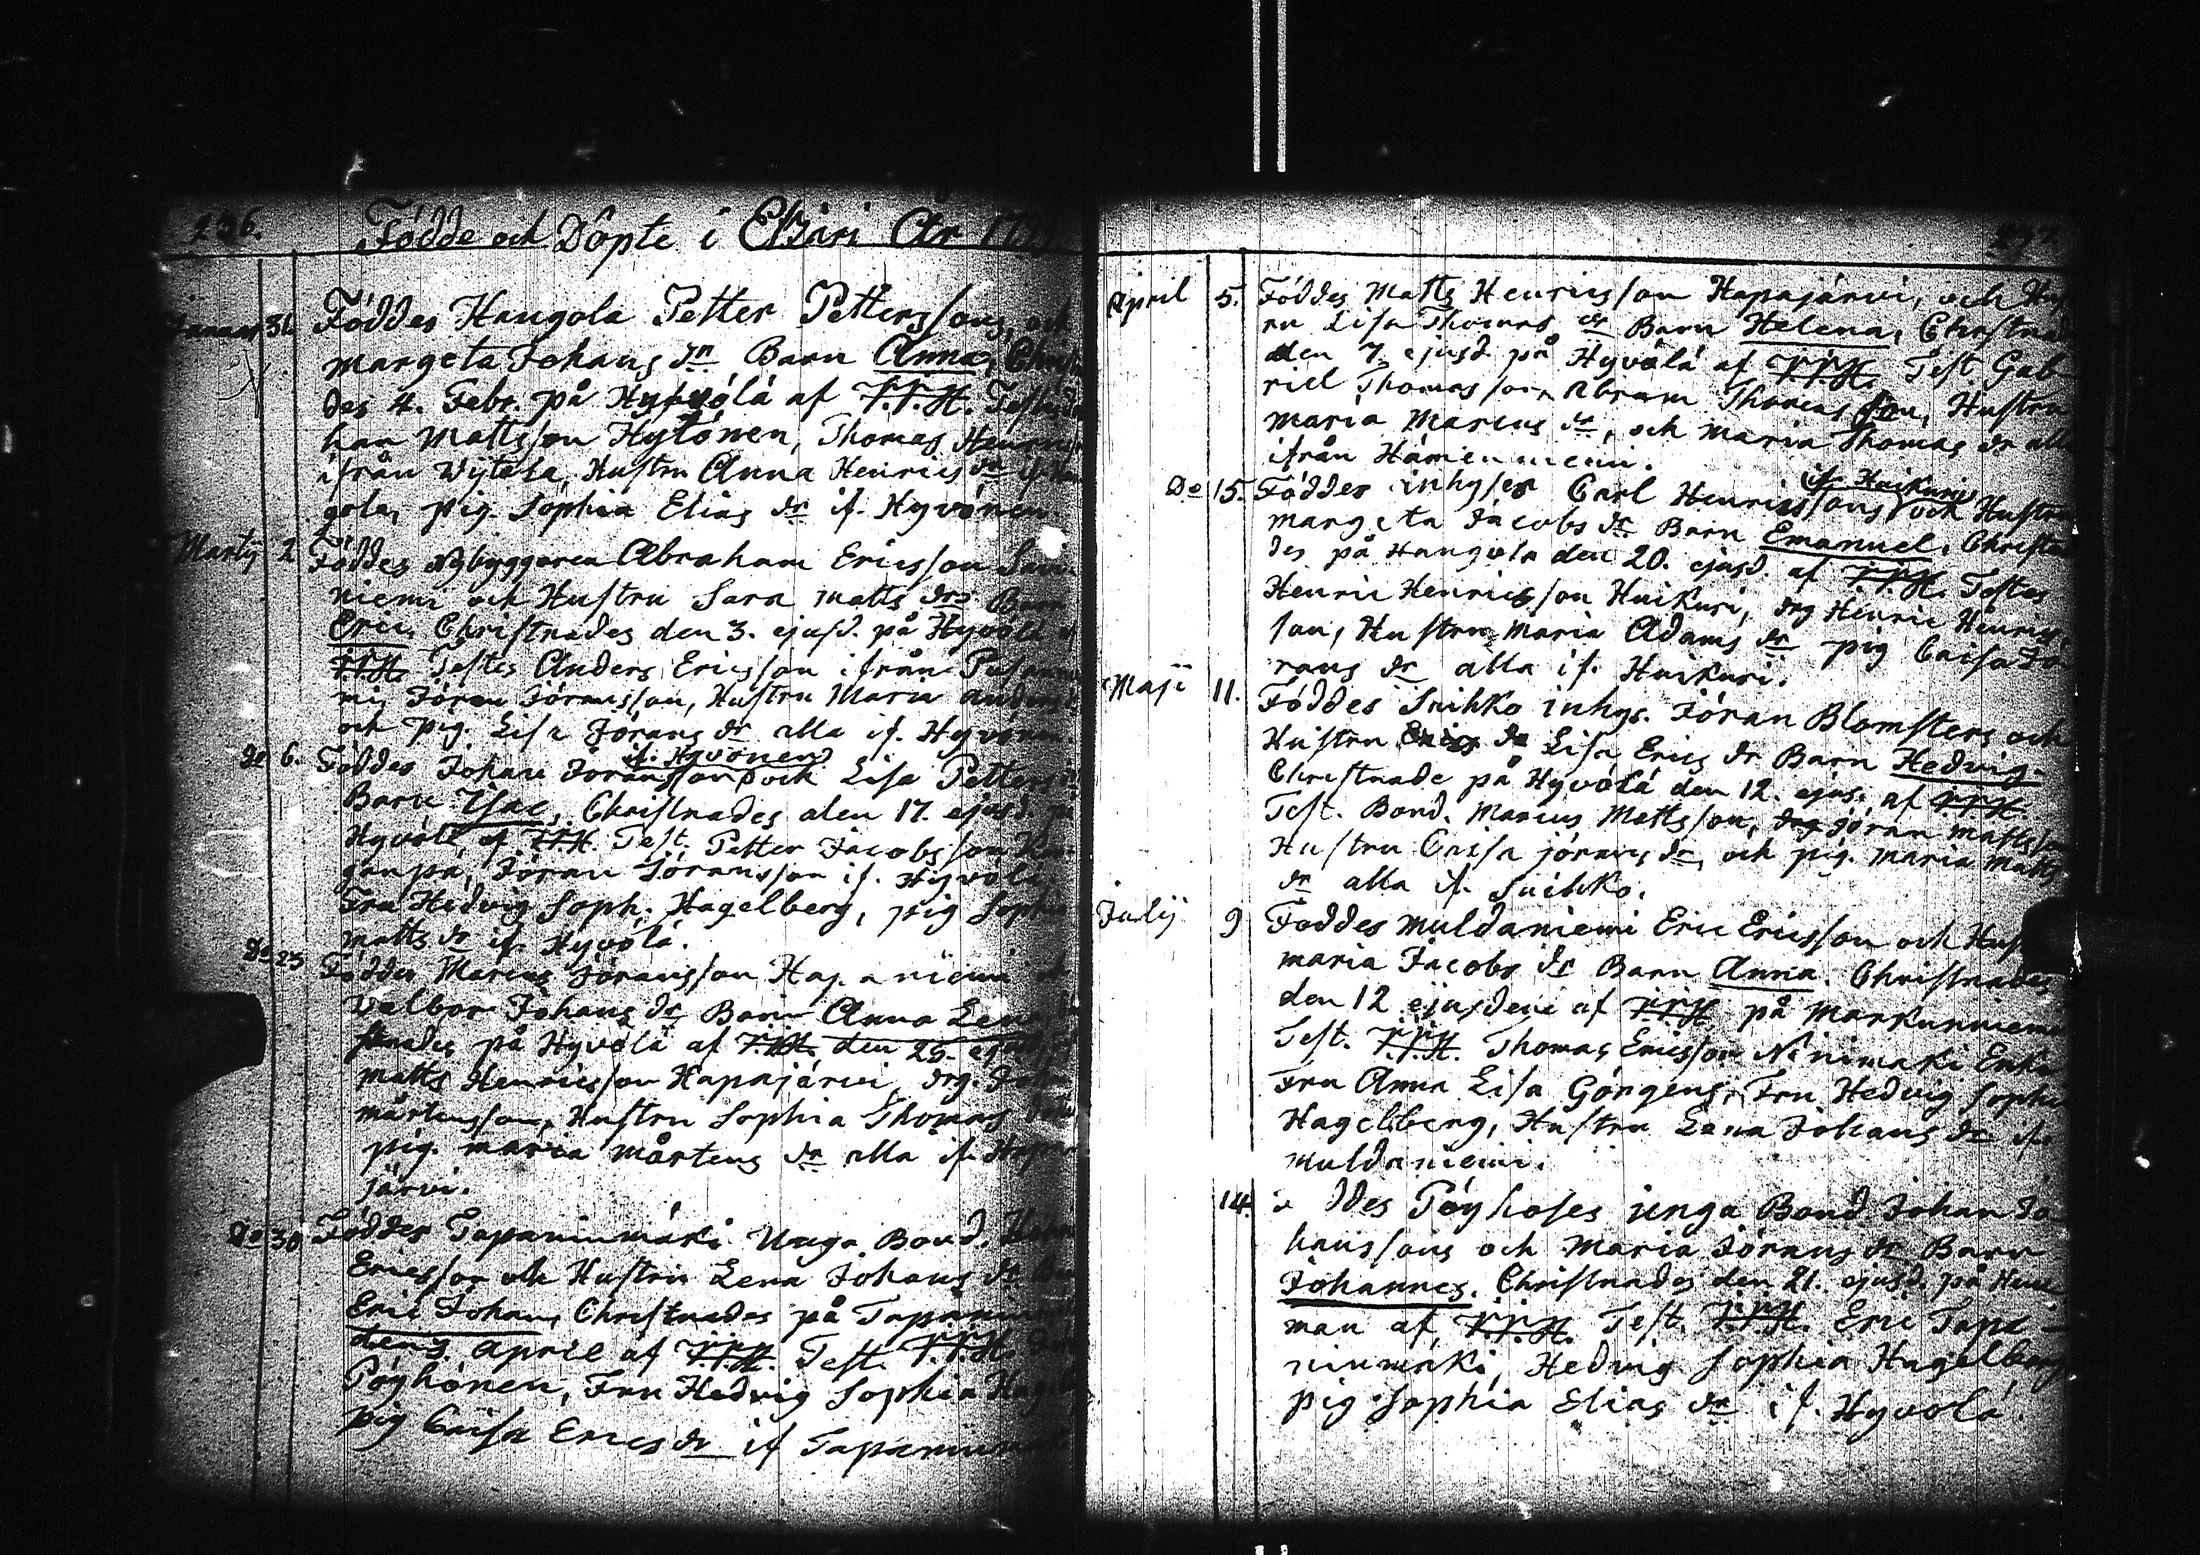 236.
Föddde och Döpte i Etzäri År
31. Föddes Hangola Petter Petterssons, och
Margeta Johans dr Barn Anna, Christna
des 4. Febr. på Hyfvölä af V.P.H. Testes Jo
han Mattsson Hytönen, Thomas
ifrån Wytala, Hustru Anna Henrics dr if. Han
gola, pig. Sophia Elias dr if. Hyvönen
Martij 2 Föddes Nybyggaren Abraham Ericsson
niemi och Hustru Sara Matts drs Barn
Eric, Christnades den 3. ejusd. på Hyvölä af
V.P.H. Testes Anders Ericsson ifrån
mi, Jöran Jöransson, Hustru Maria Anders
och pig. Lisa Jörans dr alla if. Hyvönen
if. Hyvönen
do 6. Föddes Johan Jöransson och Lisa Petters
Barn Isac, Christnades den 17. ejusd. på
Hyvölä af V.P.H. Test. Petter Jacobsson
Jöran Jöransson if. Hyvölä,
Fru Hedvig Soph. Hagelberg, pig Sophia
Matts dr if. Hyvölä.
Do 25 Föddes Marcus Jöransson och
Valbor Johans dr Barn Anna Lena
stnades på Hyvölä af V.P.H. den 25. ejusd.
Matts Henricsson Hapajärvi, drg. Johan
Mårtensson, Hustru Sophia Thomas
pig. Maria Mårtens dr alla if. Hapa
järvi.
Do 30 Föddes Tapaninmäki Unga Bond.
Ericsson och Hustru Lena Johans dr Barn
Eric Johan, Christnades på Tapaninmä
den 3. April af V.P.H. Test. V.P.H.
Pöyhönen, Fru Hedvig Sophia Hagel
pig Caisa Erics dr if Tapaninmäki
237.
April 5. Föddes Matts Henricsson Hapajärvi, och Hu
ru Lisa Thomas dr Barn Helena, Christnad
den 7. ejusd. på Hyvölä af V.P.H. Test Gab
riel Thomasson, Abram Thomas son, Hustru
Maria Marcus dr, och Maria Thomas dr alla
ifrån Häminniemi.
if. Huikuri
Do 15. Föddes inhyses Carl Henricssons och Hustru
Margeta Jacobs dr Barn Emanuel, Christna
des på Hangola den 20. ejusd. af V.P.H. Testes
Henric Henricsson Huikuri, drg Henric Henrics
son, Hustru Maria Adams dr pig Caisa Jö
rans dr alla if. Huikuri.
Maji 11. Föddes Suihko inhys. Jöran Blomsters och
Hustru Erics dr Lisa Erics dr Barn Hedvig
Christnade på Hyvölä den 12. ejus. af V.P.H.
Test. Bond. Marcus Mattsson, drg Jöran Mattsson
Hustru Caisa Jörans dr, och pig. Maria Matts
dr alla if. Suihko.
Julij 9 Foddes Muldaniemi Eric Ericsson och Hus
Maria Jacobs dr Barn Anna. Christnades
den 12 ejusdem af V.P.H. på Markunniemi
Test. V.P.H. Thomas Ericsson Niinimäki Enke
Fru Anna Lisa Görgens, Fru Hedvig Sophia
Hagelberg, Hustru Lena Johans dr if.
Muldaniemi.
14. ddes Pöyhöses unga Bond Johan Jo
hanssons och Maria Jörans dr Barn
Johannes. Christnades den 21. ejusd. på
man af V.P.H. Test. V.P.H. Eric Tapa-
ninmäki, Hedvig Sophia Hagelberg
pig Sophia Elias dr if. Hyvölä.